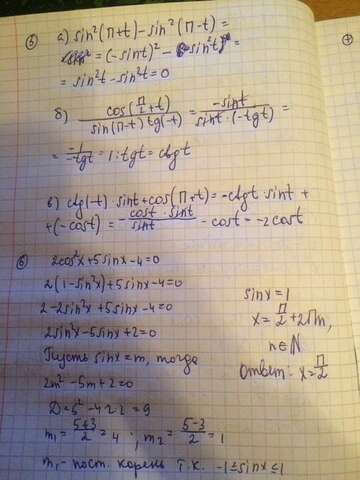 ⑤ а) sin²(π+t)-sin²(π-t)=
= (-sint)² - sin²t =
= sin²t-sin²t=0
б) cos(π/2+t) / sin(π-t)tg(-t) = -sint / sint·(-tgt) =
= -1/-tgt = 1:tgt = ctgt
в) ctg(-t)·sint+cos(π+t)=-ctgt·sint+
+(-cost) = -cost·sint/sint - cost = -2cost
⑥ 2cos²x+5sinx-4=0
2(1-sin²x)+5sinx-4=0
2-2sin²x+5sinx-4=0
2sin²x-5sinx+2=0
Пусть sinx=m, тогда
2m²-5m+2=0
D=5²-4·2·2=9
m₁=5+3/2=4; m₂=5-3/2=1
m₁- пост. корень т.к. -1≤sinx≤1
sinx=1
x=π/2+2πn,
n∈N
Ответ: x=π/2